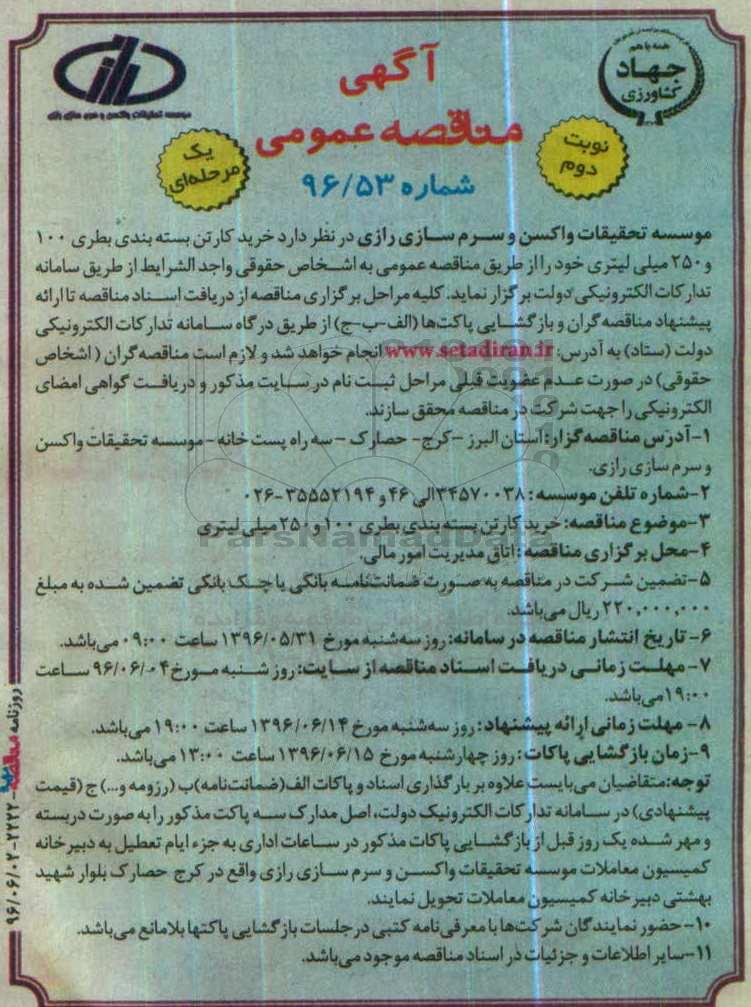 همه با هم
جهاد
کشاورزی
موسسه تحقیقات واکسن و سرم سازی رازی
آگهی
مناقصه عمومی
شماره ۹۶/۵۳
نوبت
دوم
یک
مرحله‌ای
موسسه تحقیقات واکسن و سرم سازی رازی در نظر دارد خرید کارتن بسته بندی بطری ۱۰۰
و ۲۵۰ میلی لیتری خود را از طریق مناقصه عمومی به اشخاص حقوقی واجد الشرایط از طریق سامانه
تدارکات الکترونیکی دولت برگزار نماید. کلیه مراحل برگزاری مناقصه از دریافت اسناد مناقصه تا ارائه
پیشنهاد مناقصه گران و بازگشایی پاکت‌ها (الف-ب-ج) از طریق درگاه سامانه تدارکات الکترونیکی
دولت (ستاد) به آدرس: www.setadiran.ir انجام خواهد شد و لازم است مناقصه گران (اشخاص
حقوقی) در صورت عدم عضویت قبلی مراحل ثبت نام در سایت مذکور و دریافت گواهی امضای
الکترونیکی را جهت شرکت در مناقصه محقق سازند.
۱-آدرس مناقصه گزار: استان البرز -کرج- حصارک - سه راه پست خانه - موسسه تحقیقات واکسن
و سرم سازی رازی.
۲-شماره تلفن موسسه: ۳۴۵۷۰۰۳۸الی ۴۶ و ۳۵۵۵۲۱۹۴-۰۲۶
۳-موضوع مناقصه: خرید کارتن بسته بندی بطری ۱۰۰ و ۲۵۰ میلی لیتری
ParsNamadData
۴-محل برگزاری مناقصه: اتاق مدیریت امور مالی.
۵-تضمین شرکت در مناقصه به صورت ضمانتنامه بانکی یا چک بانکی تضمین شده به مبلغ
۲۲۰,۰۰۰,۰۰۰ ریال می‌باشد.
۶- تاریخ انتشار مناقصه در سامانه: روز سه‌شنبه مورخ ۱۳۹۶/۰۵/۳۱ ساعت ۰۹:۰۰ می‌باشد.
۷- مهلت زمانی دریافت اسناد مناقصه از سایت: روز شنبه مورخ ۹۶/۰۶/۰۴ ساعت
۱۹:۰۰ می‌باشد.
۸- مهلت زمانی ارائه پیشنهاد: روز سه‌شنبه مورخ ۱۳۹۶/۰۶/۱۴ ساعت ۱۹:۰۰ می‌باشد.
۹-زمان بازگشایی پاکات: روز چهارشنبه مورخ ۱۳۹۶/۰۶/۱۵ ساعت ۱۳:۰۰ می‌باشد.
توجه: متقاضیان می‌بایست علاوه بر بارگذاری اسناد و پاکات الف(ضمانت‌نامه)ب (رزومه و...) ج (قیمت
پیشنهادی) در سامانه تدارکات الکترونیک دولت، اصل مدارک سه پاکت مذکور را به صورت دربسته
و مهر شده یک روز قبل از بازگشایی پاکات مذکور در ساعات اداری به جزء ایام تعطیل به دبیرخانه
کمیسیون معاملات موسسه تحقیقات واکسن و سرم سازی رازی واقع در کرج حصارک بلوار شهید
بهشتی دبیرخانه کمیسیون معاملات تحویل نمایند.
۱۰-حضور نمایندگان شرکت‌ها با معرفی‌نامه کتبی در جلسات بازگشایی پاکتها بلامانع می‌باشد.
۱۱-سایر اطلاعات و جزئیات در اسناد مناقصه موجود می‌باشد.
روزنامه مناقصه -۲۲۲۲- ۹۶/۰۶/۰۲